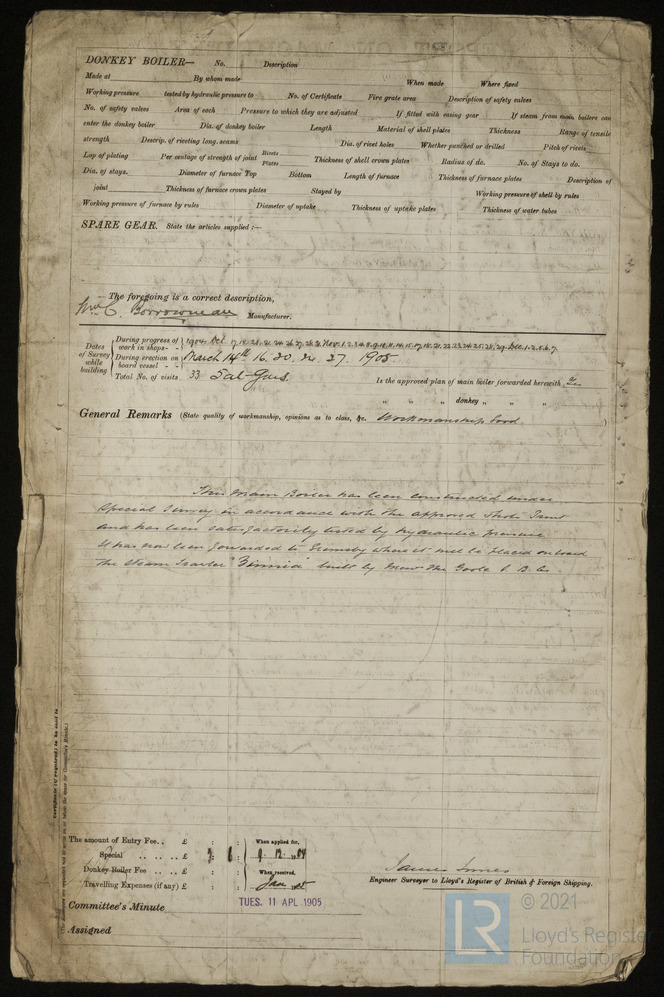 DONKEY BOILER— No. Description
Made at By whom made When made Where fixed
Working pressure tested by hydraulic pressure to No. of Certificate Fire grate area Description of safety valves
No. of safety valves Area of each Pressure to which they are adjusted If fitted with easing gear If steam from main boilers can
enter the donkey boiler Dia. of donkey boiler Length Material of shell plates Thickness Range of tensile
strength Descrip. of riveting long. seams Dia. of rivet holes Whether punched or drilled Pitch of rivets
Lap of plating Per centage of strength of joint Rivets Plates Thickness of shell crown plates Radius of do. No. of Stays to do.
Dia. of stays. Diameter of furnace Top Bottom Length of furnace Thickness of furnace plates Description of
joint Thickness of furnace crown plates Stayed by Working pressure of shell by rules
Working pressure of furnace by rules Diameter of uptake Thickness of uptake plates Thickness of water tubes
SPARE GEAR. State the articles supplied :—
The foregoing is a correct description,
Wm C. Borrowman Manufacturer.
Dates of Survey while building
During progress of work in shops - - 1904 Oct
During erection on board vessel - - March 14th 16. 20. 24. 27. 1905
Total No. of visits 33
Is the approved plan of main boiler forwarded herewith
" " " donkey " " "
General Remarks (State quality of workmanship, opinions as to class, &c. Workmanship Good )
This Main Boiler has been constructed under
Special Survey in accordance with the approved
and has been satisfactorily tested by hydraulic pressure
It has now been forwarded to Grimsby where it will be placed onboard
the Steam Trawler built by the Goole S. B. Co
Certificate (if required) to be sent to
The amount of Entry Fee.. £ : : When applied for,
Special .. .. .. £ 3 : 6 : 9. 12. 1904
Donkey Boiler Fee .. .. £ : : When received,
Travelling Expenses (if any) £ : : Jan
James Innes
Engineer Surveyor to Lloyd's Register of British & Foreign Shipping.
Committee's Minute TUES. 11 APL 1905
Assigned
LR © 2021
Lloyd's Register
Foundation